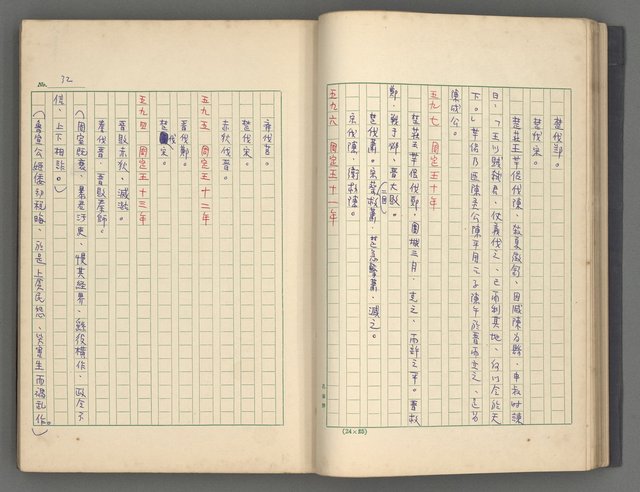 楚伐鄭。
楚伐宋。
楚莊王率諸侯伐陳、殺夏徵舒、因滅陳為縣、申叔時諫
曰、「王以賊弒君、仗義伐之、已而利其地、何以令於天
下。」華侶乃匠陳靈公陳平周之子陳午於晉而立之、是為
陳成公。
五九七 周定王十年
楚莊王率侯伐鄭、圍城三月、克之、而許之平。晉救
鄭、戰于邲、晉大敗。
楚伐蕭。宋華救蕭、楚怒 蕭、滅之。
宋伐陳、衛救陳。
五九六 周定王十一年
(24×25)
No. 32
齊伐莒。
楚伐宋。
赤狄伐晉。
五九五 周定王十二年
晉伐鄭。
楚伐宋。
五九四 周定王十三年
晉敗赤狄、滅潞。
秦伐晉、晉敗秦師。
(周室既衰、暴君汙吏、慢其經界、繇役橫作、政令不
信、上下相詐。)
(魯宣公 初稅畝、於是上 民怨、災害生而禍亂作。)